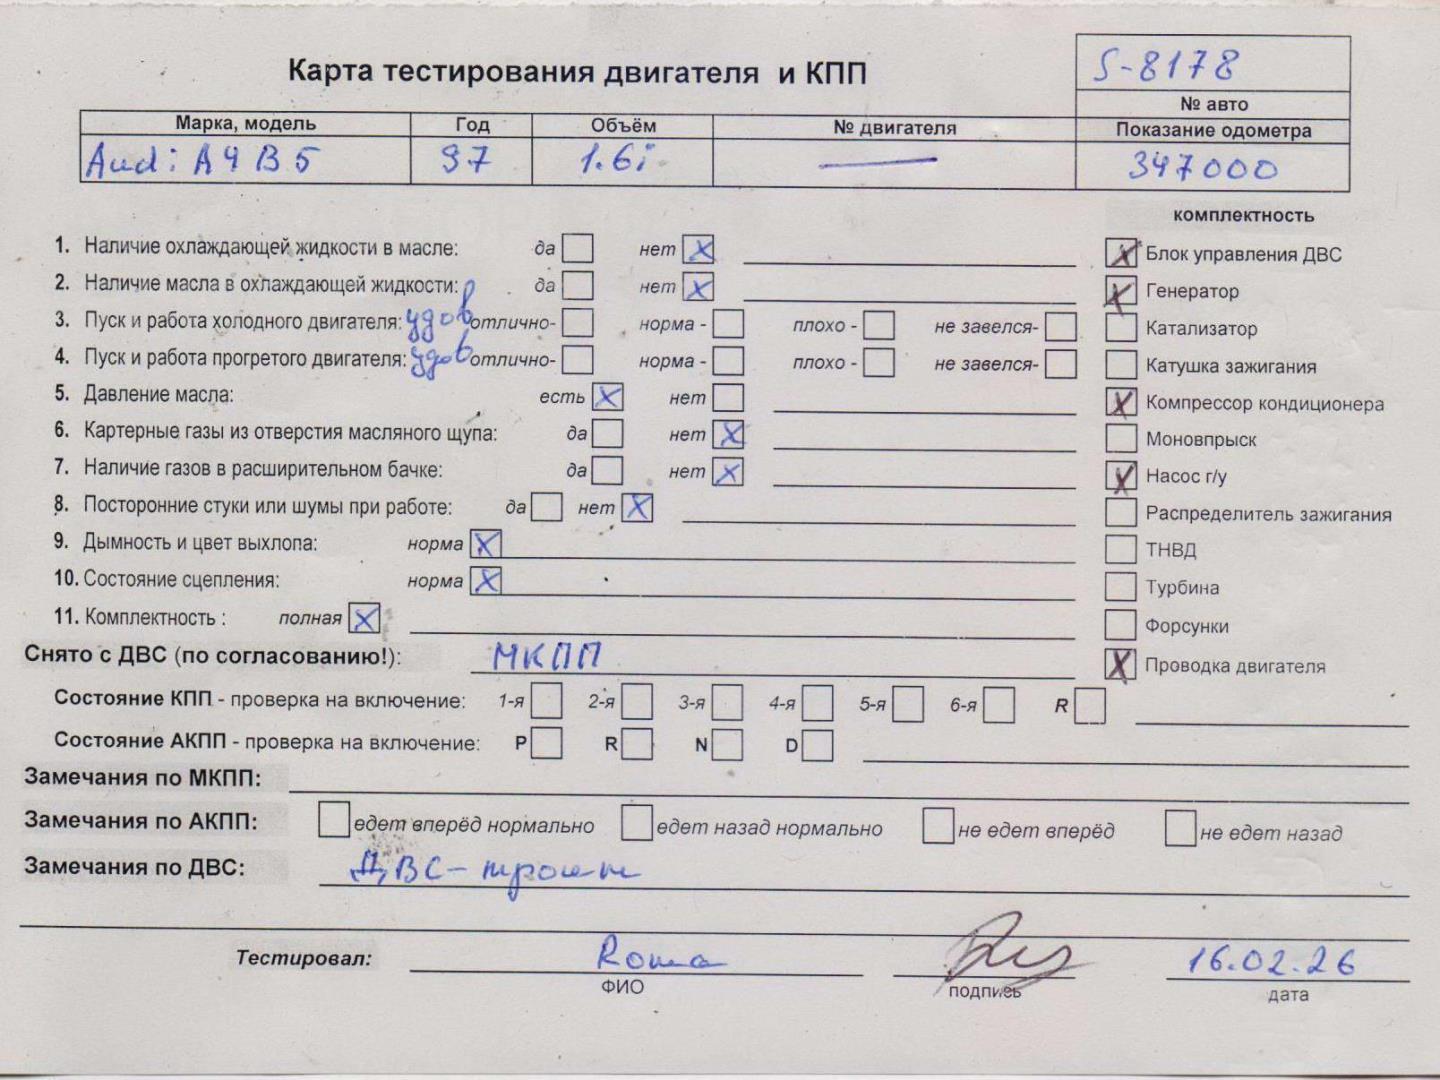 Карта тестирования двигателя и КПП
S-8178
№ авто
Марка, модель Год Объём № двигателя Показание одометра
Audi A4 B5 97 1.6i — 347000
комплектность
1. Наличие охлаждающей жидкости в масле: да нет X
2. Наличие масла в охлаждающей жидкости: да нет X
3. Пуск и работа холодного двигателя: удов отлично- норма - плохо - не завелся-
4. Пуск и работа прогретого двигателя: удов отлично- норма - плохо - не завелся-
5. Давление масла: есть X нет
6. Картерные газы из отверстия масляного щупа: да нет X
7. Наличие газов в расширительном бачке: да нет X
8. Посторонние стуки или шумы при работе: да нет X
9. Дымность и цвет выхлопа: норма X
10. Состояние сцепления: норма X
11. Комплектность : полная X
X Блок управления ДВС
X Генератор
Катализатор
Катушка зажигания
X Компрессор кондиционера
Моновпрыск
X Насос г/у
Распределитель зажигания
ТНВД
Турбина
Форсунки
X Проводка двигателя
Снято с ДВС (по согласованию!): МКПП
Состояние КПП - проверка на включение: 1-я 2-я 3-я 4-я 5-я 6-я R
Состояние АКПП - проверка на включение: P R N D
Замечания по МКПП:
Замечания по АКПП: едет вперёд нормально едет назад нормально не едет вперёд не едет назад
Замечания по ДВС: ДВС - троит
Тестировал: Roma 16.02.26
ФИО подпись дата